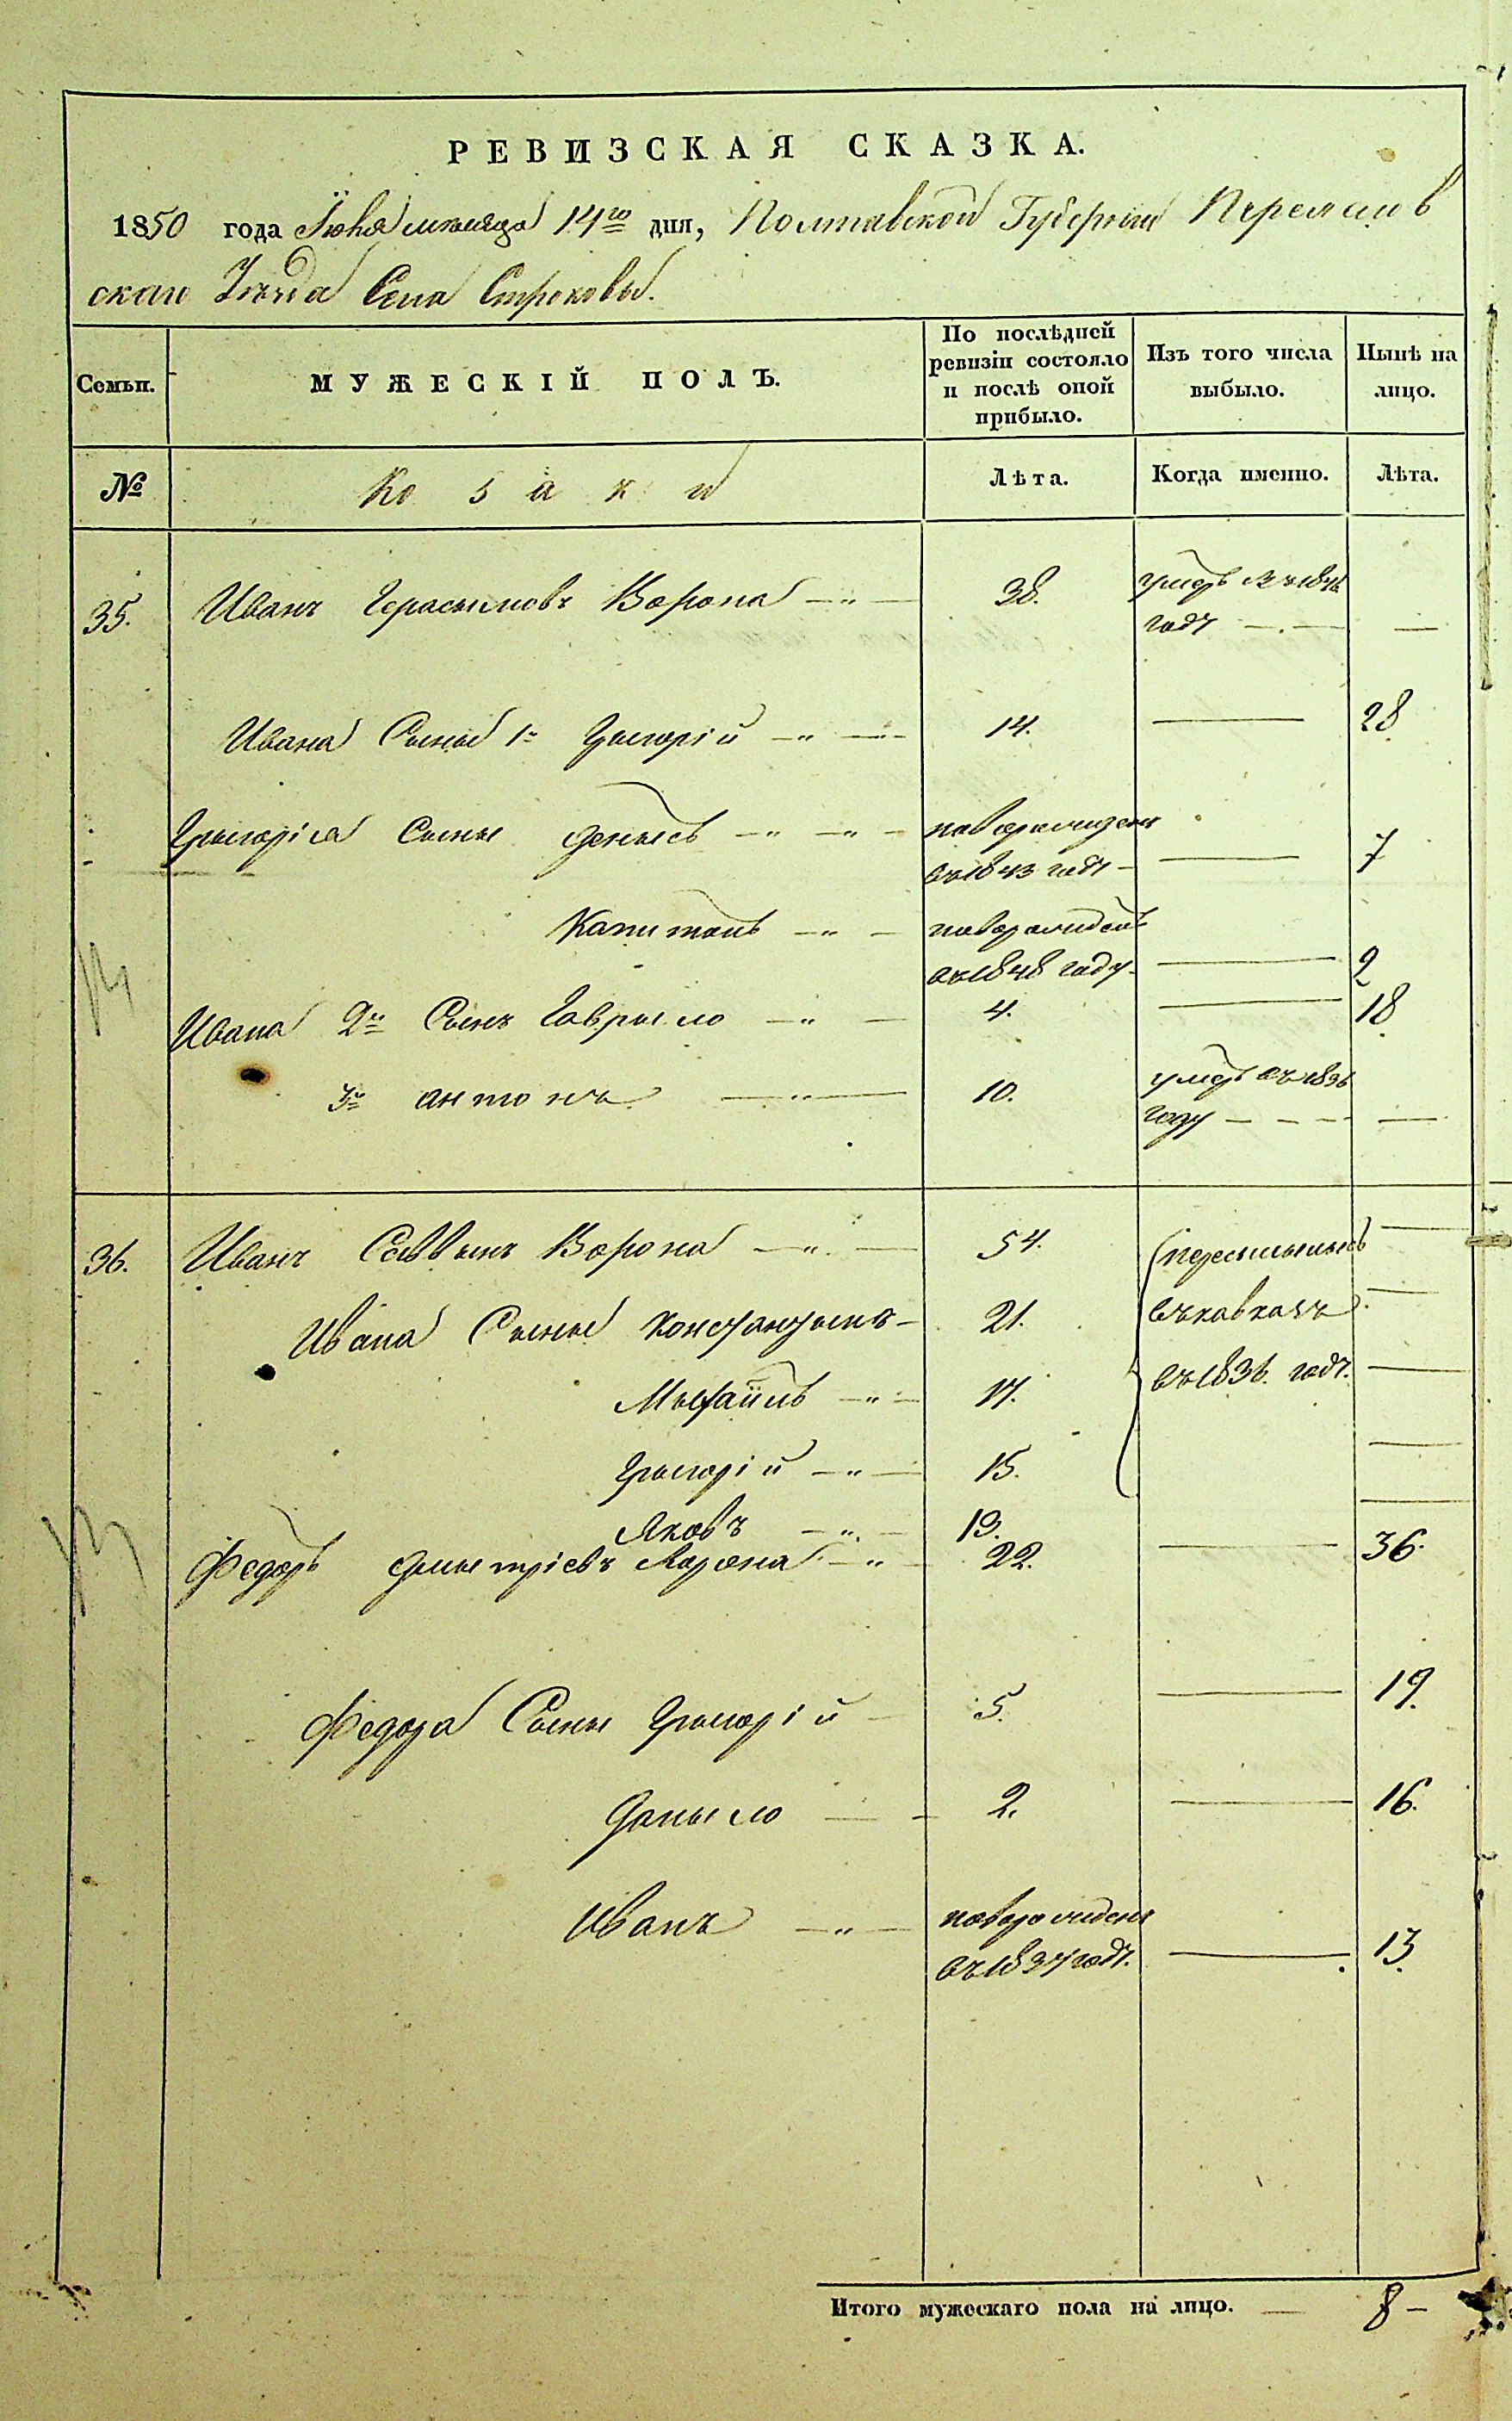 РЕВИЗСКАЯ СКАЗКА.
1850 года Июня месяца 14го дня, Полтавской Губернии Переяслов
скаго Уезда Села Строковы.
Семьи. МУЖЕСКІЙ ПОЛЪ. По послѣдней ревизіи состояло и послѣ оной прибыло. Изъ того числа выбыло. Нынѣ на лицо.
№ Козаки Лѣта. Когда именно. Лѣта.
35. Иванъ Герасымовъ Ворона —„— 38. умеръ въ
году —.— —
Ивана Сыны 1й Грыгорій —„— 14. — 28
Грыгорія Сыны Денысъ —„— новорожденъ
въ 1843 году — — 7
Капитонъ —„— новорожденъ
въ 1848 году — — 2
Ивана 2й Сынъ Гаврыло —„— 4. — 18
3й Антонъ —„— 10. умеръ въ 1836
году — — — —
36. Иванъ Саввынъ Ворона —„— 54. (переселылысь —
Ивана Сыны Константынъ — 21. въ Кавказъ —
Мыхаилъ —„— 17. въ 1836. году. —
Грыгорій —„— 15. —
Яковъ —„— 13. —
Федоръ Дмытріевъ Ворона —„— 22. — 36.
Федора Сыны Грыгорій — 5. — 19.
Даныло — — 2. — 16.
Иванъ —„— новорожденъ
въ 1837 году. — 13.
Итого мужескаго пола на лицо. — 8 —